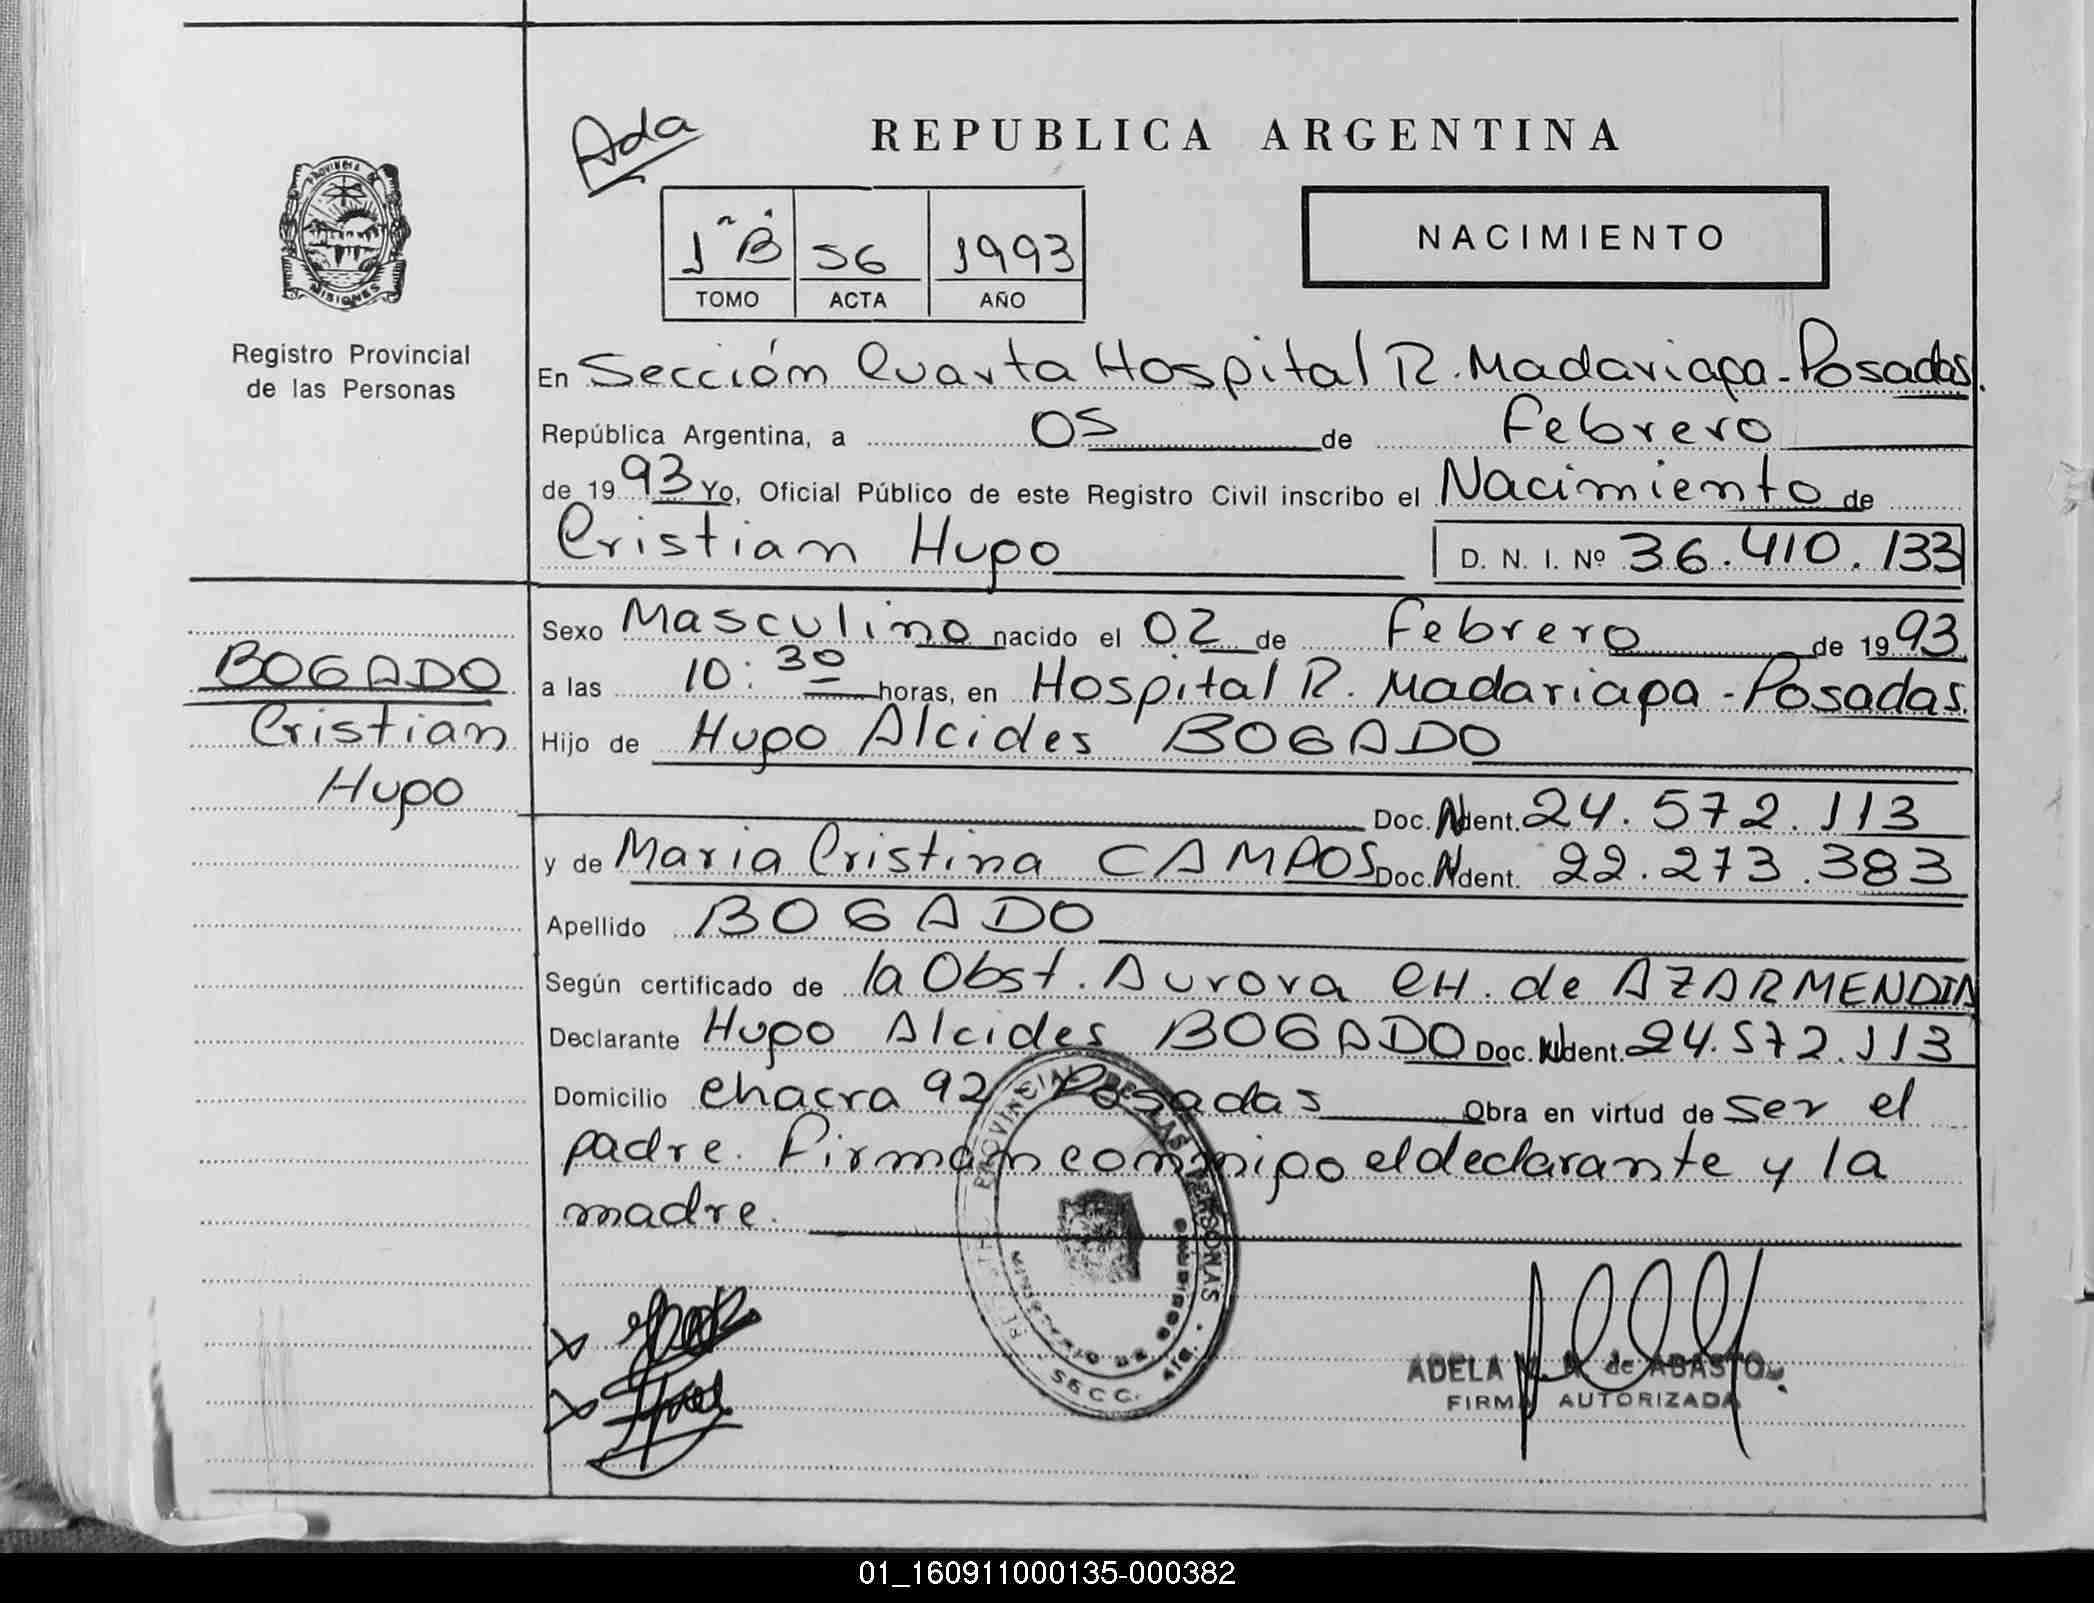 Ada
REPUBLICA ARGENTINA
PROVINCIA DE
MISIONES
1º "B" 56 1993
TOMO ACTA AÑO
NACIMIENTO
Registro Provincial
de las Personas
En Sección Cuarta Hospital R. Madariaga - Posadas.
República Argentina, a 05 de Febrero
de 1993 Yo, Oficial Público de este Registro Civil inscribo el Nacimiento de
Cristian Hugo D. N. I. Nº 36.410.133
Sexo Masculino nacido el 02 de Febrero de 1993
a las 10:30 horas, en Hospital R. Madariaga - Posadas.
Hijo de Hugo Alcides BOGADO
Doc. Ident. 24.572.113
y de Maria Cristina CAMPOS Doc. Ident. 22.273.383
Apellido BOGADO
Según certificado de la Obst. Aurora CH. de AZARMENDIA
Declarante Hugo Alcides BOGADO Doc. Ident. 24.572.113
Domicilio Chacra 92 Posadas Obra en virtud de ser el
padre. Firman conmigo el declarante y la
madre.
BOGADO
Cristian
Hugo
PROVINCIAL DE LAS PERSONAS
MINISTERIO DE GOBIERNO
SECC. 4ta.
ADELA de ABASTO
FIRMA AUTORIZADA
01_160911000135-000382